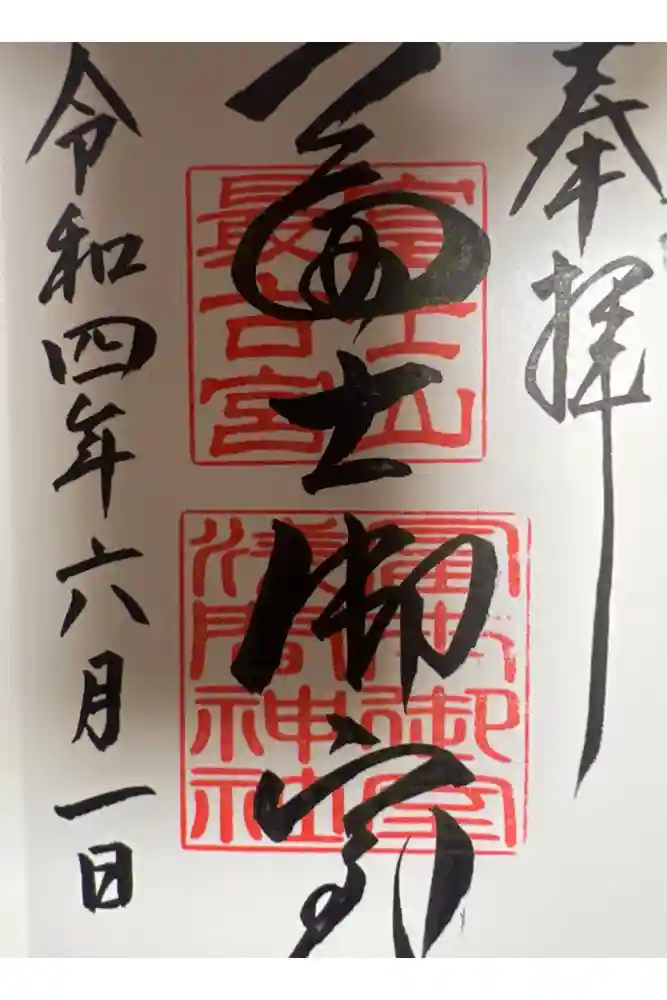 奉拝
冨士御室
富士山
最古宮
御室
浅間神社
令和四年六月一日